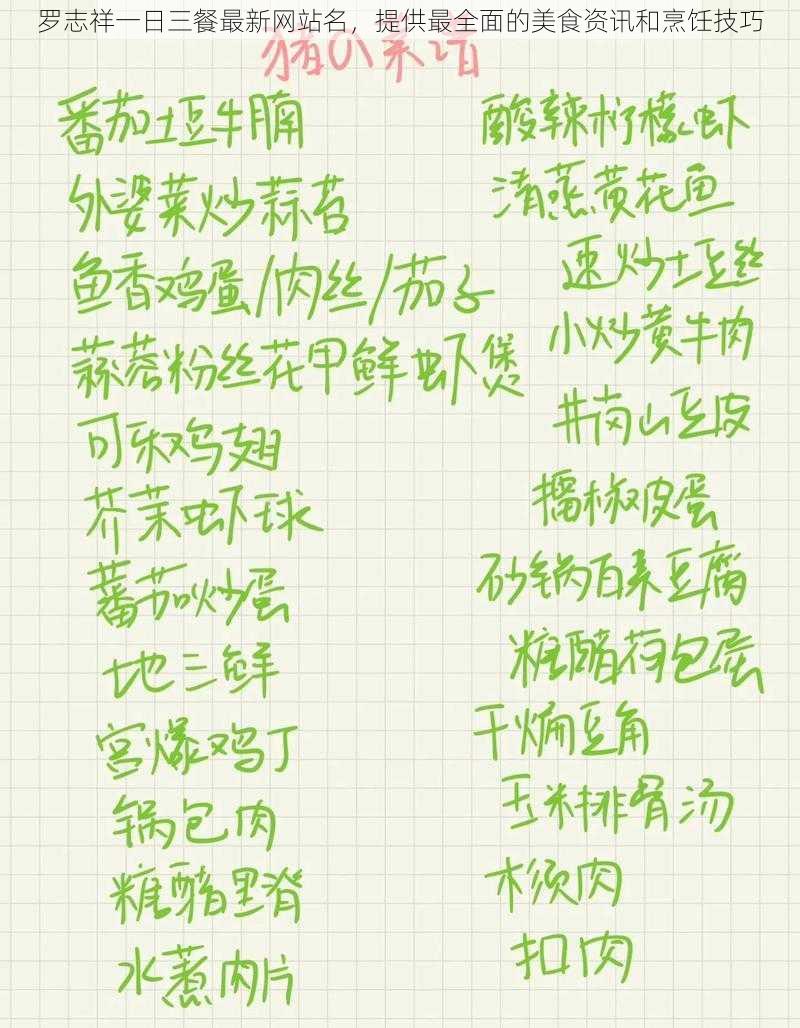 罗志祥一日三餐最新网站名，提供最全面的美食资讯和烹饪技巧
猪の菜谱
番茄土豆牛腩
外婆菜炒蒜苔
鱼香鸡蛋/肉丝/茄子
蒜蓉粉丝花甲鲜虾煲
可乐鸡翅
芥茉虾球
蕃茄炒蛋
地三鲜
宫爆鸡丁
锅包肉
糖醋里脊
水煮肉片
酸辣柠檬虾
清蒸黄花鱼
速炒土豆丝
小炒黄牛肉
井岗山豆皮
擂椒皮蛋
砂锅百素豆腐
糖醋荷包蛋
干煸豆角
玉米排骨汤
木须肉
扣肉